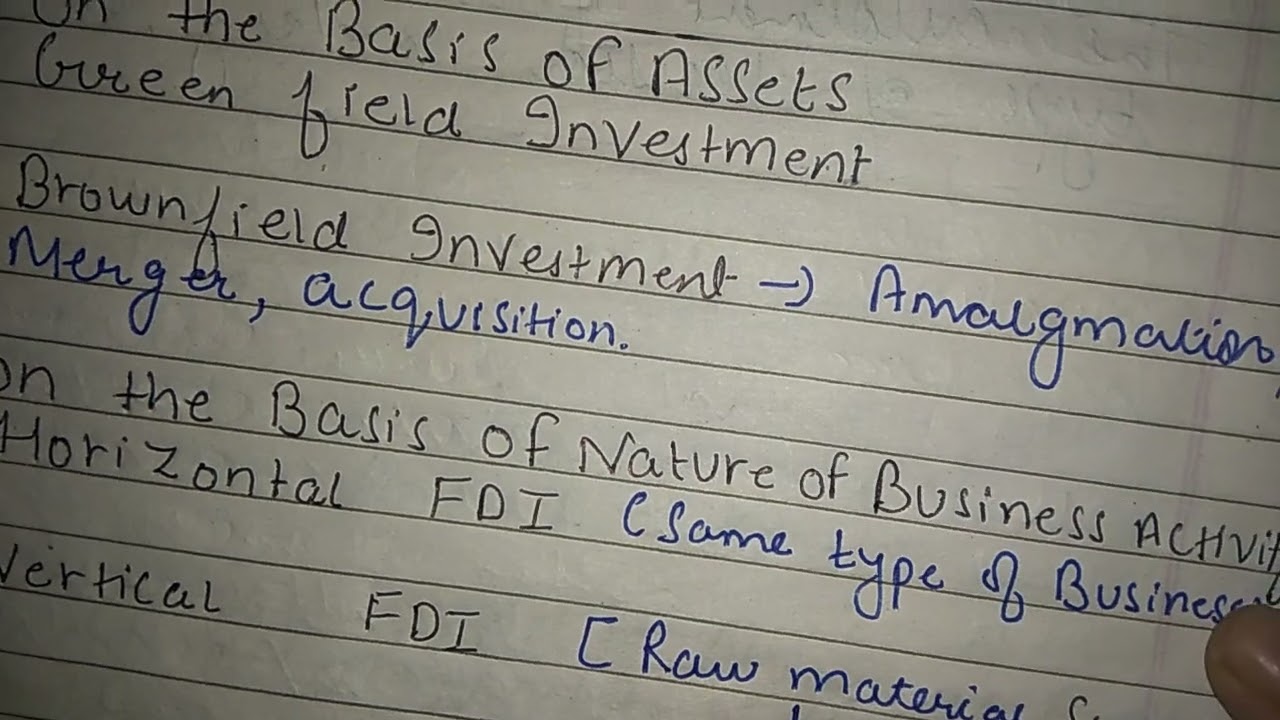 On the Basis of Assets
Green field Investment
Brownfield Investment → Amalgmation,
Merger, acquisition.
On the Basis of Nature of Business
Horizontal FDI (Same type of Business
Vertical FDI [Raw material